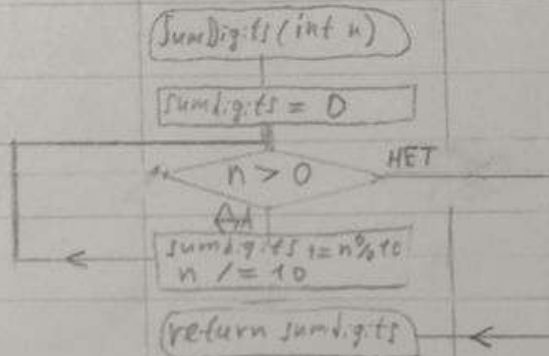 SumDigits(int n)
sumdigits = 0
n > 0
НЕТ
ДА
sumdigits += n%10
n /= 10
return sumdigits